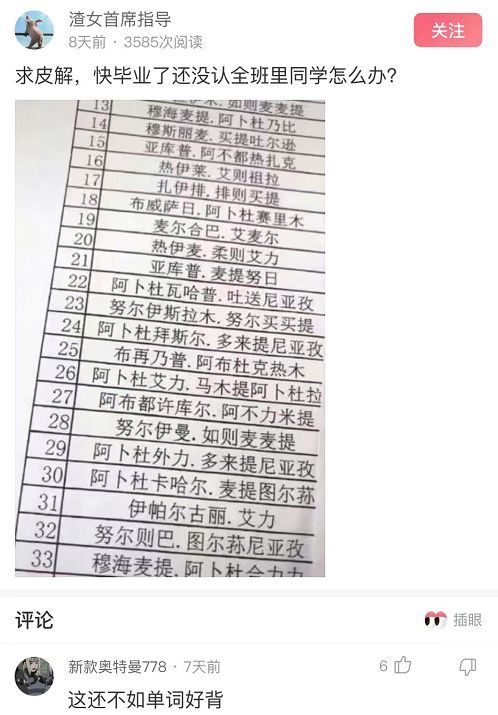 渣女首席指导
8天前 · 3585次阅读
关注
求皮解，快毕业了还没认全班里同学怎么办？
13 如则麦麦提
14 穆海麦提.阿卜杜乃比
15 穆斯丽麦.买提吐尔逊
16 亚库普.阿不都热扎克
17 热伊莱.艾则祖拉
18 扎伊排.排则买提
19 布威萨日.阿卜杜赛里木
20 麦尔合巴.艾麦尔
21 热伊麦.柔则艾力
22 亚库普.麦提努日
23 阿卜杜瓦哈普.吐送尼亚孜
24 努尔伊斯拉木.努尔买买提
25 阿卜杜拜斯尔.多来提尼亚孜
26 布再乃普.阿布杜克热木
27 阿卜杜艾力.马木提阿卜杜拉
28 阿布都许库尔.阿不力米提
29 努尔伊曼.如则麦麦提
30 阿卜杜外力.多来提尼亚孜
31 阿卜杜卡哈尔.麦提图尔荪
32 伊帕尔古丽.艾力
33 努尔则巴.图尔荪尼亚孜
穆海麦提.阿卜杜合力力
评论
插眼
新款奥特曼778 · 7天前
6
这还不如单词好背